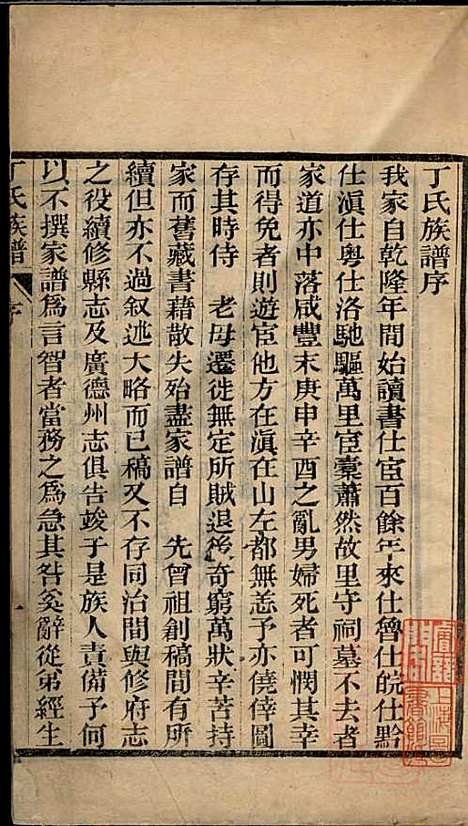 丁氏族譜序
我家自乾隆年間始讀書仕宦百餘年來仕魯仕皖仕黔
仕滇仕粵仕洛馳驅萬里宦橐蕭然故里守祠墓不去者
家道亦中落咸豐末庚申辛酉之亂男婦死者可憫其幸
而得免者則遊宦他方在滇在山左都無恙予亦僥倖圖
存其時侍 老母遷徙無定所賊退後奇窮萬狀辛苦持
家而舊藏書藉散失殆盡家譜自 先曾祖創稿間有所
續但亦不過叙述大略而已稿又不存同治間與修府志
之役續修縣志及廣德州志俱告竣于是族人責備予何
以不撰家譜爲言智者當務之爲急其咎奚辭從弟經生
丁氏族譜 序 一